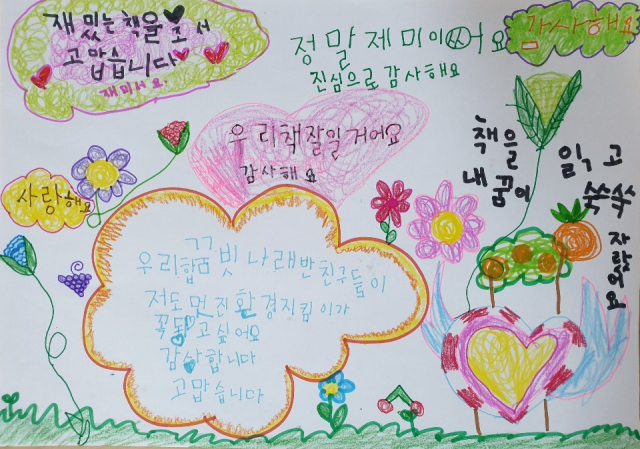 재밌는책을 조서
고맙습니다
재미서요
정말제미이ㅆ어요
진심으로감사해요
감사해요
우리책잘일거어요
감사해요
책을 읽고
내꿈이 쑥쑥
자랄어요
사랑해요
꿈빛나래반친구들이
저도멋진환경지킴이가
꼭되고싶어요
감사합니다
고맙습니다